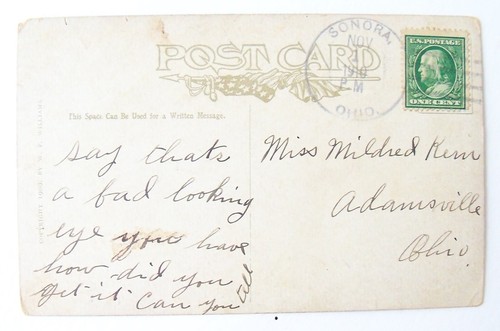 POST CARD
SONORA,
NOV
1910
P M
OHIO.
U.S. POSTAGE
ONE CENT
This Space Can Be Used for a Written Message.
say thats
a bad looking
eye you have
how did you
get it can you
tell
Miss Mildred Kern
Adamsville
Ohio